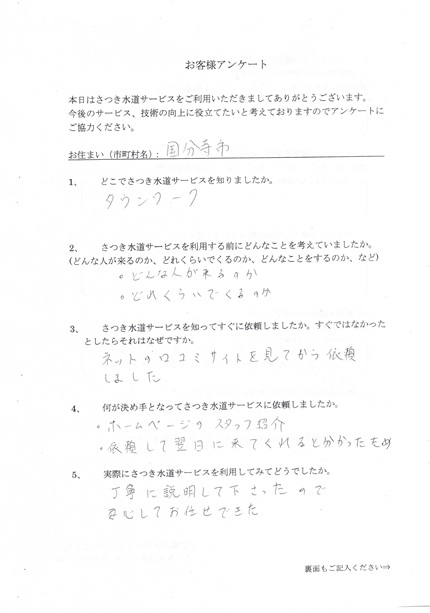 お客様アンケート
本日はさつき水道サービスをご利用いただきましてありがとうございます。
今後のサービス、技術の向上に役立てたいと考えておりますのでアンケートに
ご協力ください。
お住まい（市町村名）： 国分寺市
1、 どこでさつき水道サービスを知りましたか。
タウンワーク
2、 さつき水道サービスを利用する前にどんなことを考えていましたか。
(どんな人が来るのか、どれくらいでくるのか、どんなことをするのか、など)
。どんな人が来るのか
。どれくらいでくるのか
3、 さつき水道サービスを知ってすぐに依頼しましたか。すぐではなかった
としたらそれはなぜですか。
ネットの口コミサイトを見てから依頼
しました
4、 何が決め手となってさつき水道サービスに依頼しましたか。
・ホームページのスタッフ紹介
・依頼して翌日に来てくれると分かったため
5、 実際にさつき水道サービスを利用してみてどうでしたか。
丁寧に説明して下さったので
安心してお任せできた
裏面もご記入ください⇒